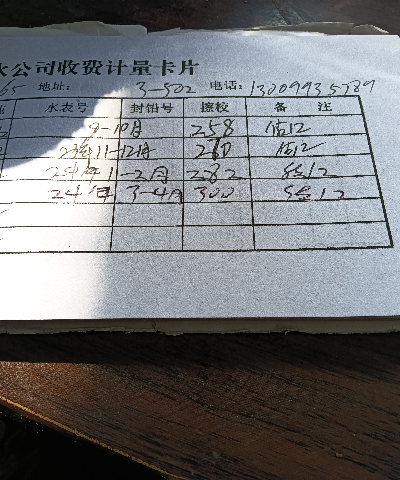 水公司收费计量卡片
65 地址: 3-502 电话: 13009935789
水表号 封铅号 擦校 备 注
9-10月 258 估12
23年11-12月 270 估12
24年1-2月 282 估12
24年 3-4月 300 估12